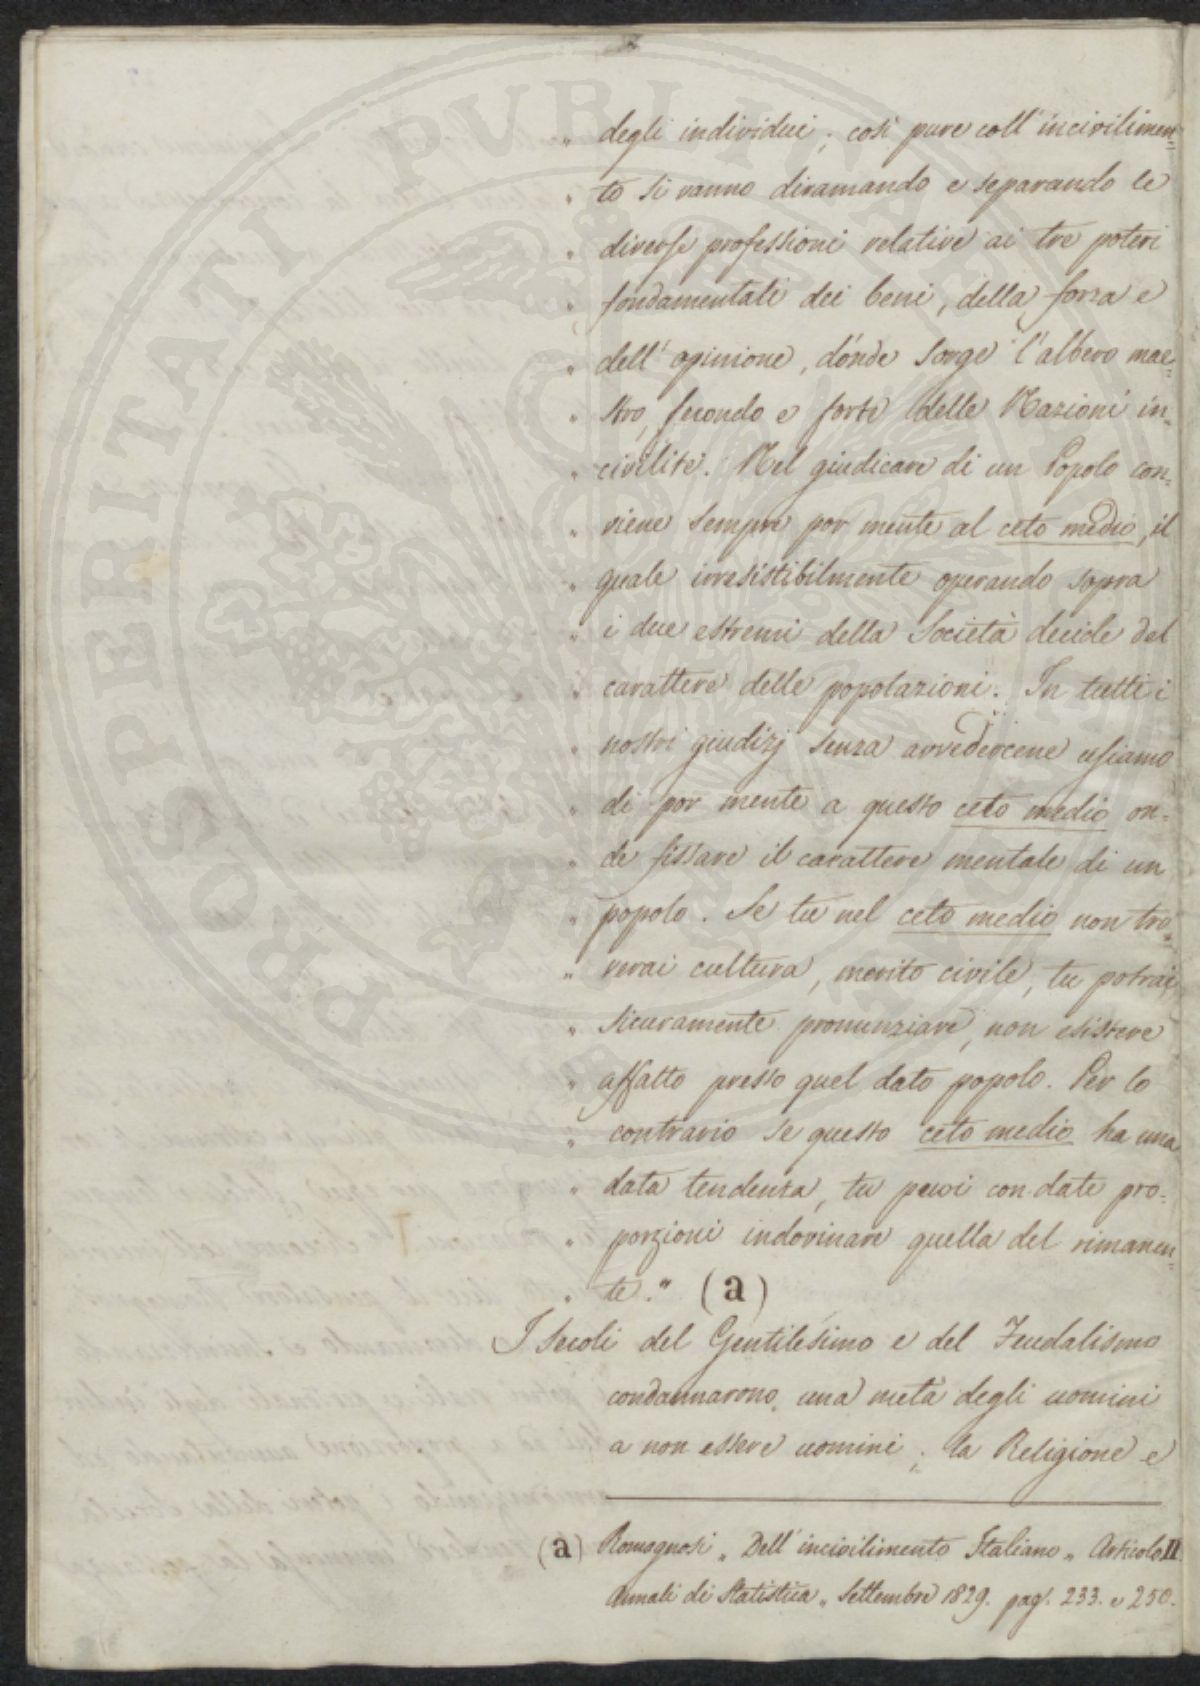 „ degli individui; così pure coll'incivilimen=
„ to si vanno diramando e separando le
„ diverse professioni relative ai tre poteri
„ fondamentali dei beni, della forza e
„ dell'opinione, donde sorge l'albero mae=
„ stro, fecondo e forte delle Nazioni in=
„ civilite. Nel giudicare di un Popolo con=
„ viene sempre por mente al ceto medio, il
„ quale irresistibilmente operando sopra
„ i due estremi della Società decide del
„ carattere delle popolazioni. In tutti i
„ nostri giudizj senza avvedercene usiamo
„ di por mente a questo ceto medio on=
„ de fissare il carattere mentale di un
„ popolo. Se tu nel ceto medio non tro=
„ verai cultura, merito civile, tu potrai
„ sicuramente pronunziare, non esistere
„ affatto presso quel dato popolo. Per lo
„ contrario se questo ceto medio ha una
„ data tendenza, tu puoi con date pro=
„ porzioni indovinare quella del rimanen=
„ te." (a)
I secoli del Gentilesimo e del Feudalismo
condannarono una metà degli uomini
a non essere uomini; la Religione e
(a) Romagnosi „ Dell'incivilimento Italiano „ Articolo II
Annali di Statistica „ Settembre 1829. pag. 233. e 250.
PROSPERITATI PVBLICAE